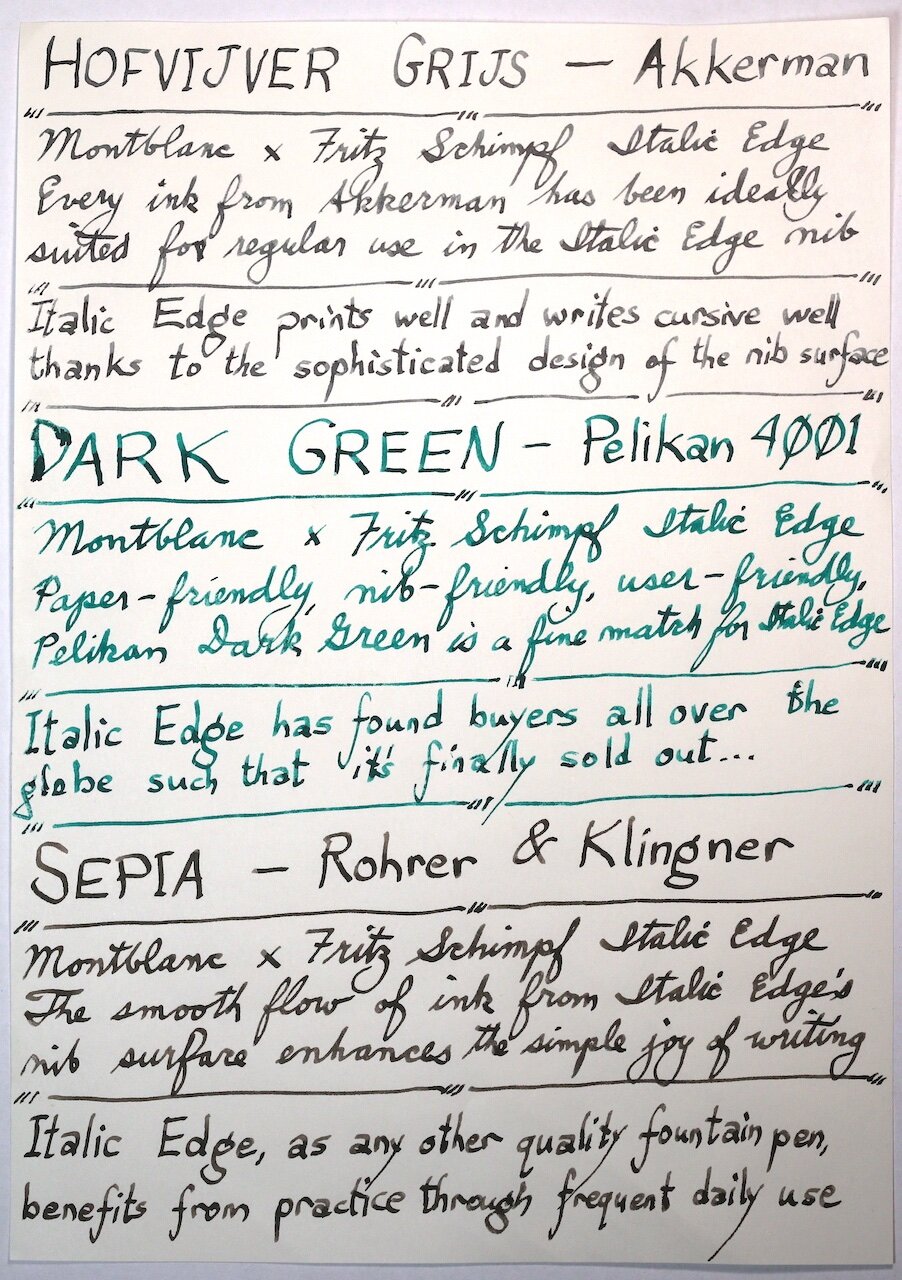 HOFVIJVER GRIJS – Akkerman
Montblanc x Fritz Schimpf Italic Edge
Every ink from Akkerman has been ideally
suited for regular use in the Italic Edge nib
Italic Edge prints well and writes cursive well
thanks to the sophisticated design of the nib surface
DARK GREEN – Pelikan 4001
Montblanc x Fritz Schimpf Italic Edge
Paper-friendly, nib-friendly, user-friendly,
Pelikan Dark Green is a fine match for Italic Edge
Italic Edge has found buyers all over the
globe such that it's finally sold out...
SEPIA – Rohrer & Klingner
Montblanc x Fritz Schimpf Italic Edge
The smooth flow of ink from Italic Edge's
nib surface enhances the simple joy of writing
Italic Edge, as any other quality fountain pen,
benefits from practice through frequent daily use